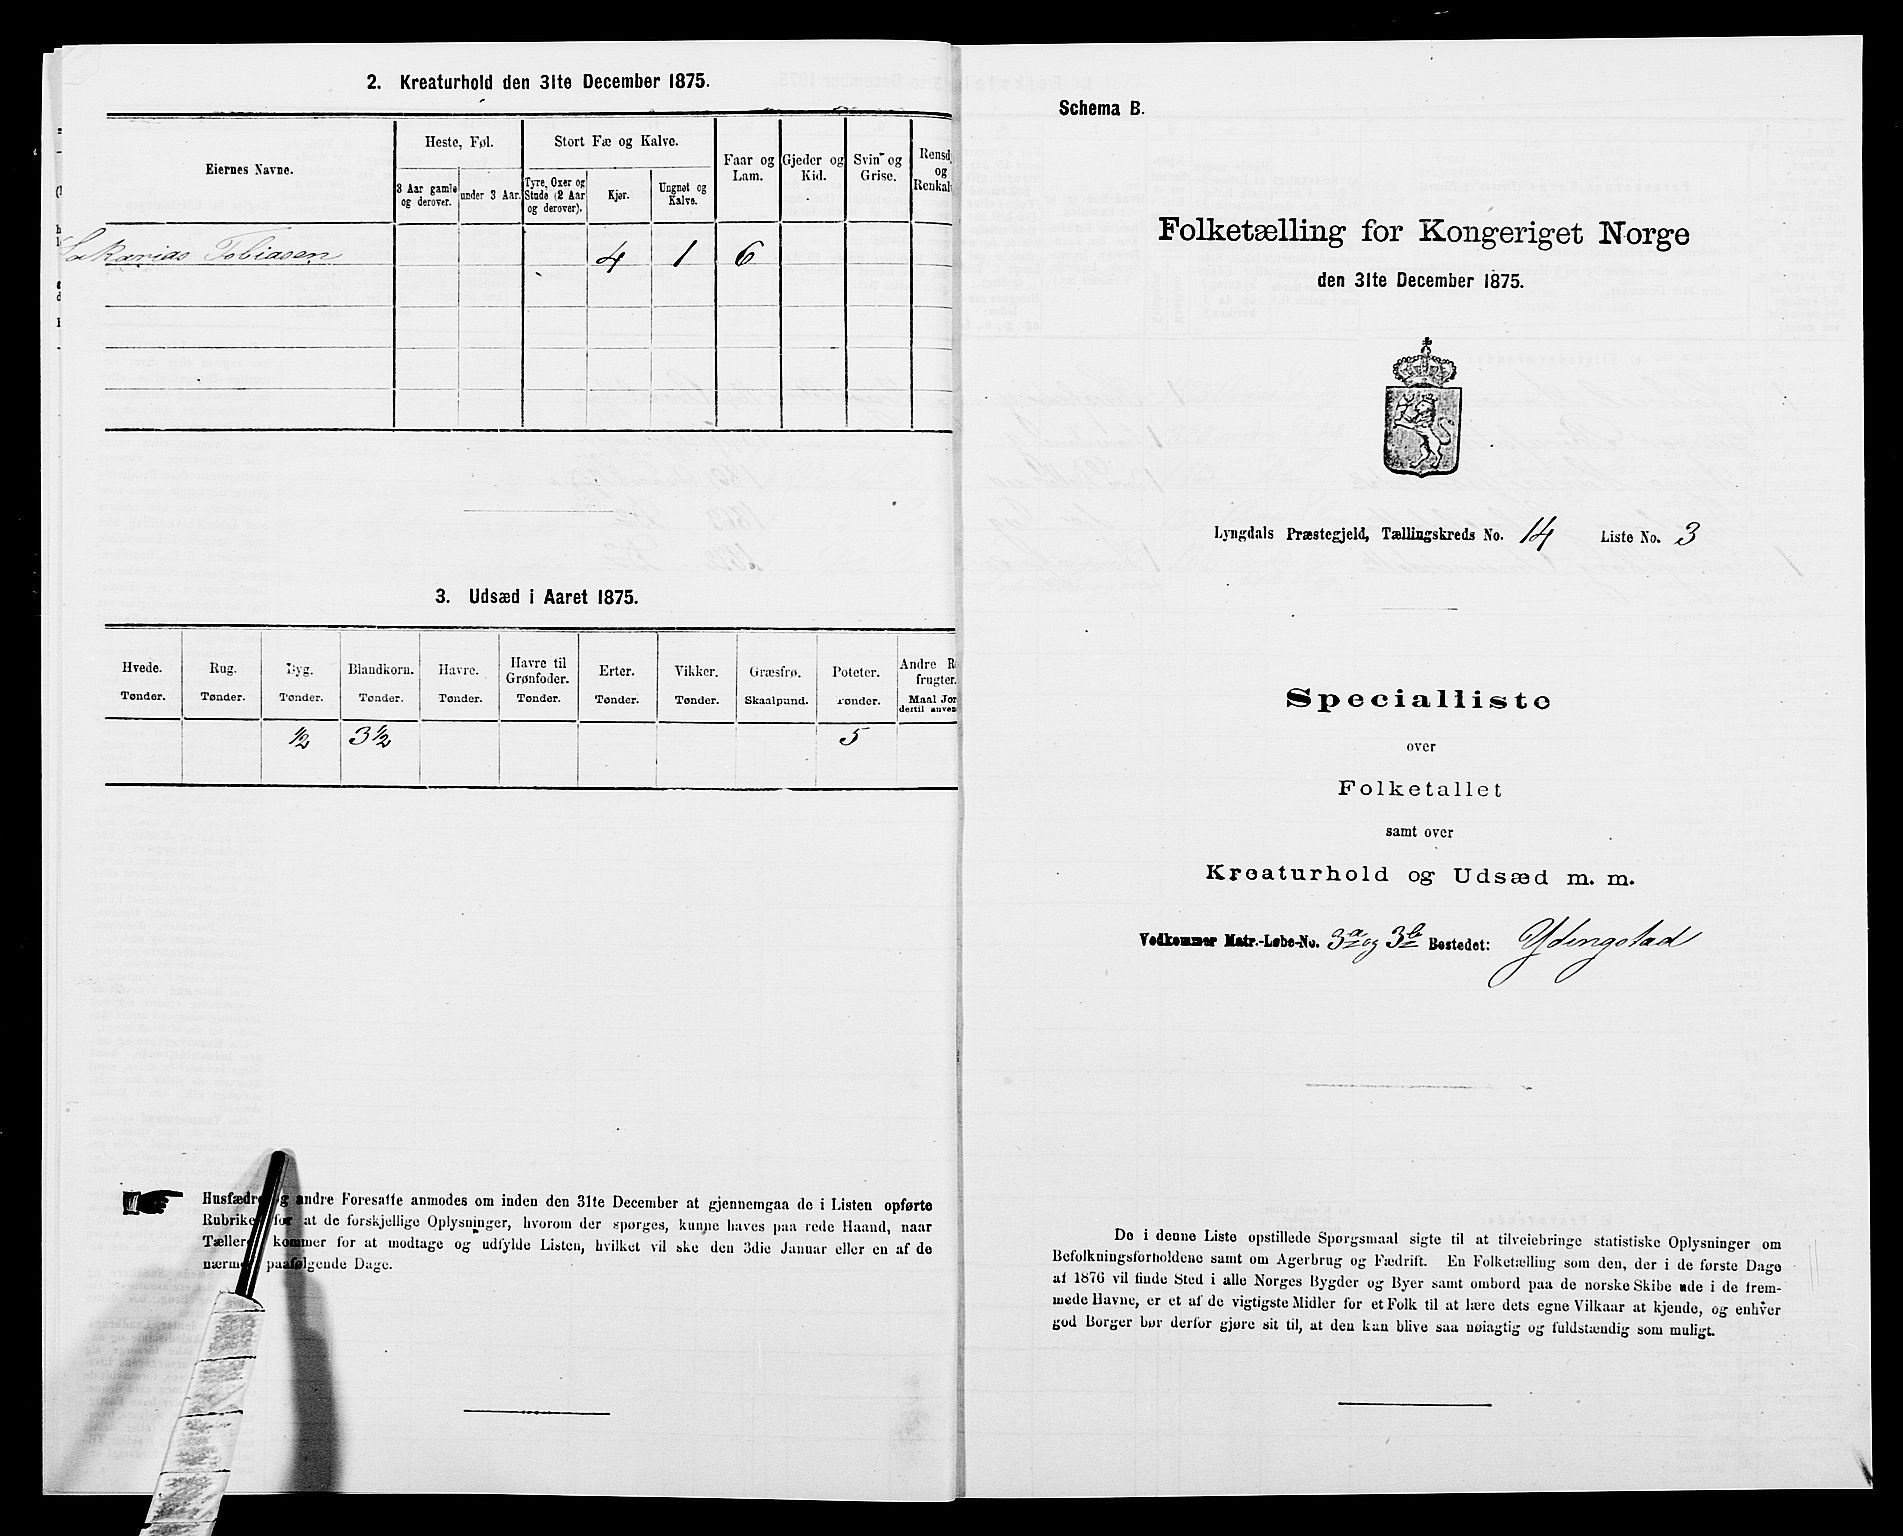 2. Kreaturhold den 31te December 1875.
Eiernes Navne.
Heste, Føl.
Stort Fæ og Kalve.
Faar og Lam.
Gjeder og Kid.
Svin og Grise.
Rensd
og
Renkal
3 Aar gamle og derover.
under 3 Aar.
Tyre, Oxer og Stude (2 Aar og derover).
Kjør.
Ungnøt og Kalve.
Sakarias Tobiasen 4 1 6
3. Udsæd i Aaret 1875.
Hvede. Rug. Byg. Blandkorn. Havre. Havre til Grønfoder. Erter. Vikker. Græsfrø. Poteter. Andre R
frugter.
Tønder. Tønder. Tønder. Tønder. Tønder. Tønder. Tønder. Tønder. Skaalpund. Tønder. Maal Jor
dertil anven
½ 3½ 5
Husfædre og andre Foresatte anmodes om inden den 31te December at gjennemgaa de i Listen opførte
Rubriker for at de forskjellige Oplysninger, hvorom der spørges, kunne haves paa rede Haand, naar
Tælleren kommer for at modtage og udfylde Listen, hvilket vil ske den 3die Januar eller en af de
nærmest paafølgende Dage.
Schema B.
Folketælling for Kongeriget Norge
den 31te December 1875.
Lyngdals Præstegjeld, Tællingskreds No. 14 Liste No. 3
Specialliste
over
Folketallet
samt over
Kreaturhold og Udsæd m. m.
Vedkommer Matr.-Løbe-No. 3a og 3b Bostedet: Ydingstad
De i denne Liste opstillede Spørgsmaal sigte til at tilveiebringe statistiske Oplysninger om
Befolkningsforholdene samt om Agerbrug og Fædrift. En Folketælling som den, der i de første Dage
af 1876 vil finde Sted i alle Norges Bygder og Byer samt ombord paa de norske Skibe ude i de frem-
mede Havne, er et af de vigtigste Midler for et Folk til at lære dets egne Vilkaar at kjende, og enhver
god Borger bør derfor gjøre sit til, at den kan blive saa nøiagtig og fuldstændig som muligt.